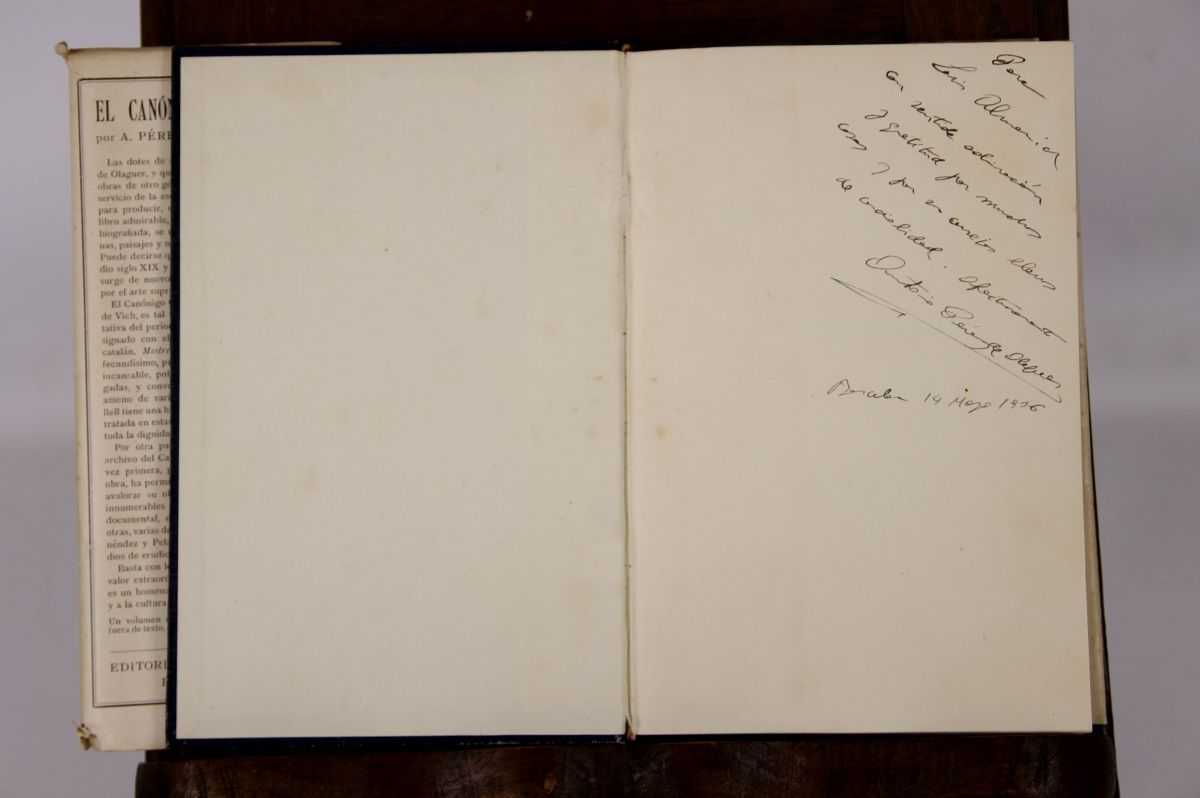 EL CANÓ
por A. PÉRE
Las dotes de
de Olaguer, y qu
obras de otro gé
servicio de la es
para producir,
libro admirable,
biografiada, se
nas, paisajes y
Puede decirse q
dio siglo XIX y
surge de nuevo
por el arte supr
El Canónigo
de Vich, es tal
tativa del perio
signado con el
catalán. Mestre
fecundísimo, p
incansable, pol
gadas, y conv
ameno de vari
llell tiene una h
tratada en estas
tuda la dignida
Por otra pa
archivo del Ca
vez primera,
obra, ha perm
avalorar su ob
innumerables
documental,
otras, varias de
néndez y Pel
dios de erudic
Basta con l
valor extraor
es un homena
y a la cultura
Un volumen
fuera de texto,
EDITORI
Para
Luis Almerich
con sentida admiración
y gratitud por muchas
cosas y por
de cordialidad. Afectuosamente
Antonio Pérez de Olaguer
Barcelona 14 Mayo 1956